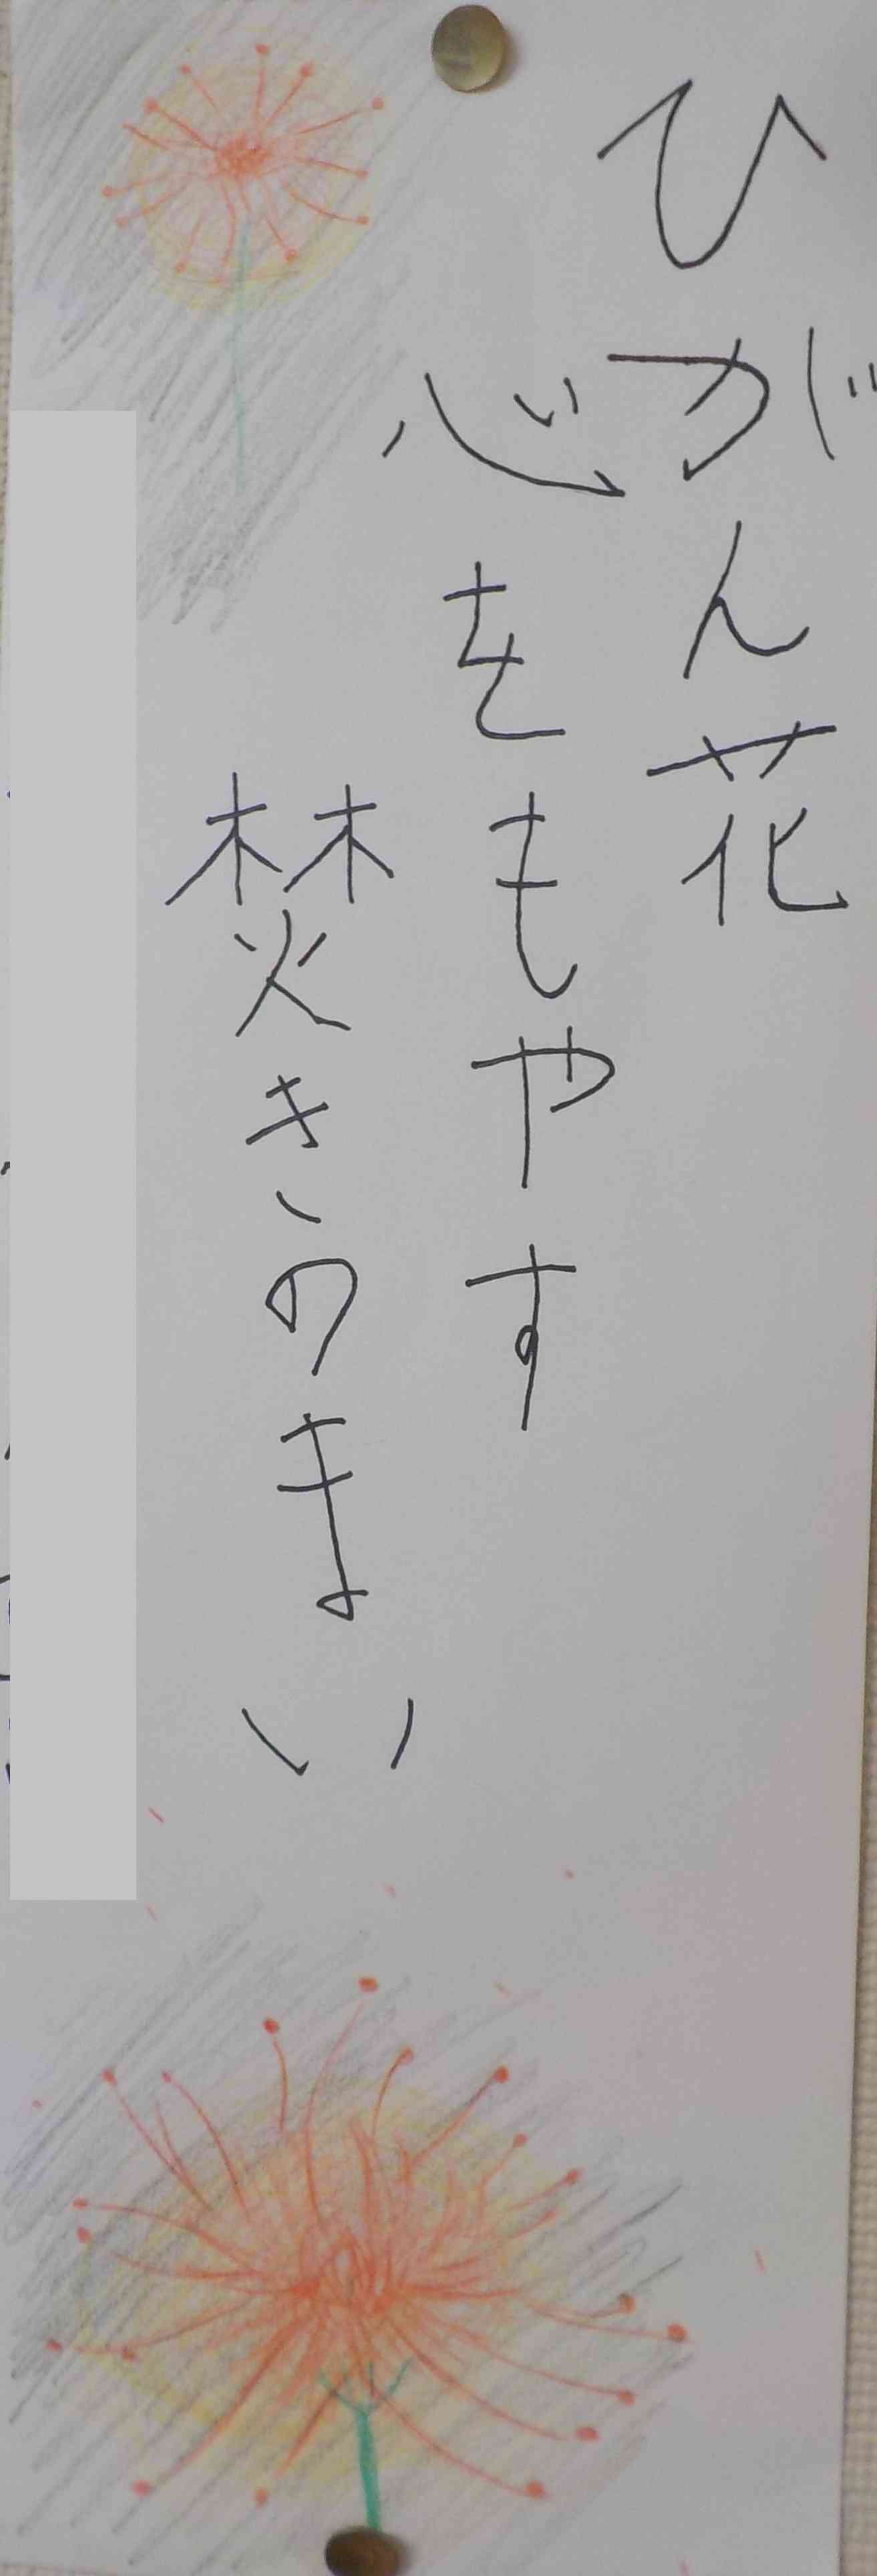 ひがん花
心をもやす
焚きのまい